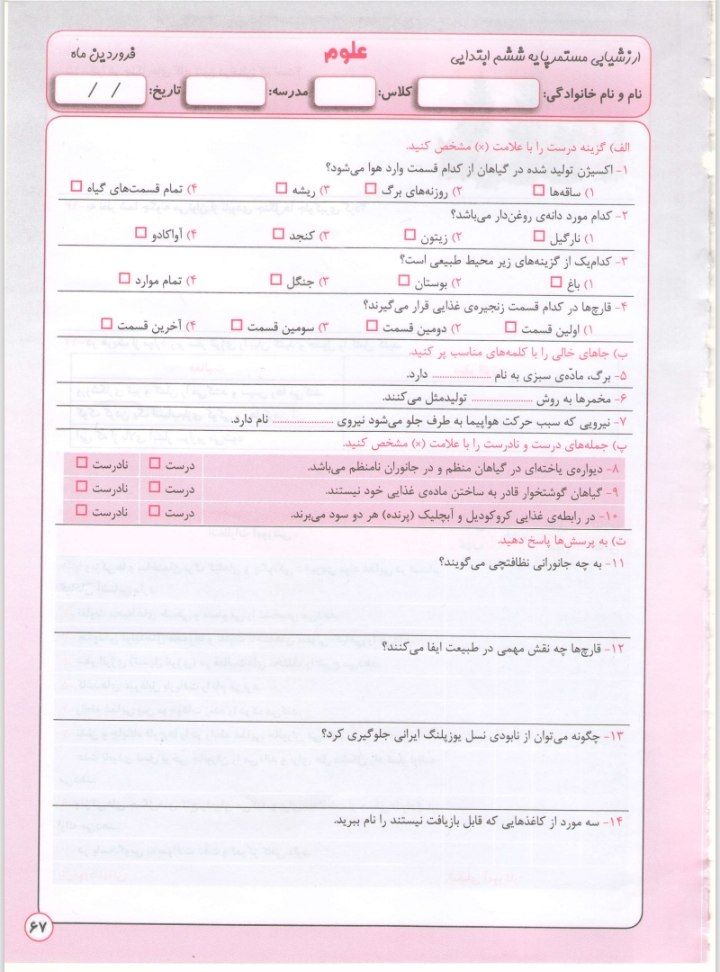 ارزشیابی مستمر پایه ششم ابتدایی علوم فروردین ماه
نام و نام خانوادگی: کلاس: مدرسه: تاریخ: / /
الف) گزینه درست را با علامت (×) مشخص کنید.
۱- اکسیژن تولید شده در گیاهان از کدام قسمت وارد هوا می‌شود؟
۱) ساقه‌ها ۲) روزنه‌های برگ ۳) ریشه ۴) تمام قسمت‌های گیاه
۲- کدام مورد دانه‌ی روغن‌دار می‌باشد؟
۱) نارگیل ۲) زیتون ۳) کنجد ۴) آواکادو
۳- کدام‌یک از گزینه‌های زیر محیط طبیعی است؟
۱) باغ ۲) بوستان ۳) جنگل ۴) تمام موارد
۴- قارچ‌ها در کدام قسمت زنجیره‌ی غذایی قرار می‌گیرند؟
۱) اولین قسمت ۲) دومین قسمت ۳) سومین قسمت ۴) آخرین قسمت
ب) جاهای خالی را با کلمه‌های مناسب پر کنید.
۵- برگ، مادّه‌ی سبزی به نام .................... دارد.
۶- مخمرها به روش .................... تولیدمثل می‌کنند.
۷- نیرویی که سبب حرکت هواپیما به طرف جلو می‌شود نیروی .................... نام دارد.
پ) جمله‌های درست و نادرست را با علامت (×) مشخص کنید.
۸- دیواره‌ی یاخته‌ای در گیاهان منظم و در جانوران نامنظم می‌باشد. درست نادرست
۹- گیاهان گوشتخوار قادر به ساختن ماده‌ی غذایی خود نیستند. درست نادرست
۱۰- در رابطه‌ی غذایی کروکودیل و آبچلیک (پرنده) هر دو سود می‌برند. درست نادرست
ت) به پرسش‌ها پاسخ دهید.
۱۱- به چه جانورانی نظافتچی می‌گویند؟
۱۲- قارچ‌ها چه نقش مهمی در طبیعت ایفا می‌کنند؟
۱۳- چگونه می‌توان از نابودی نسل یوزپلنگ ایرانی جلوگیری کرد؟
۱۴- سه مورد از کاغذهایی که قابل بازیافت نیستند را نام ببرید.
۶۷